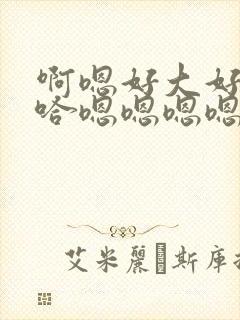 啊嗯好大好
哈嗯嗯嗯嗯
艾米麗·斯庫